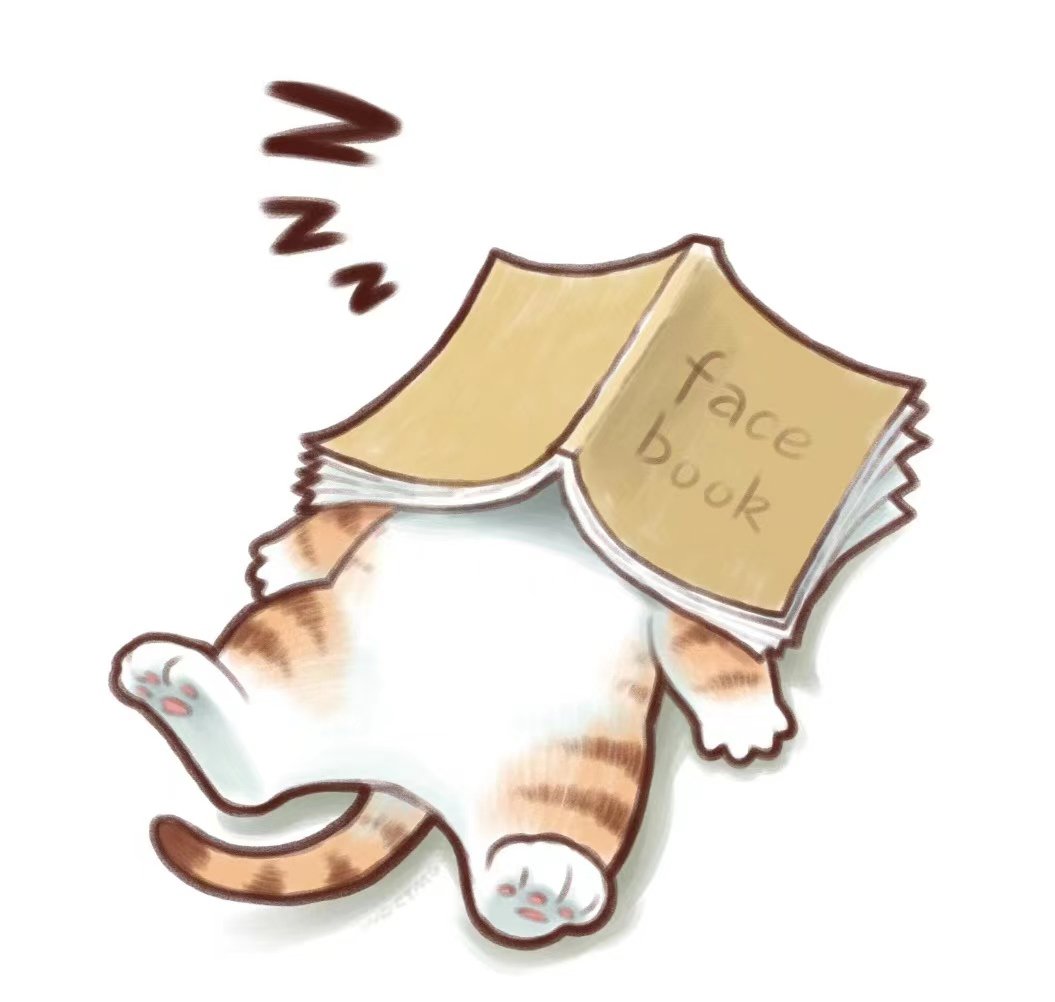 Z
Z
Z
face
book